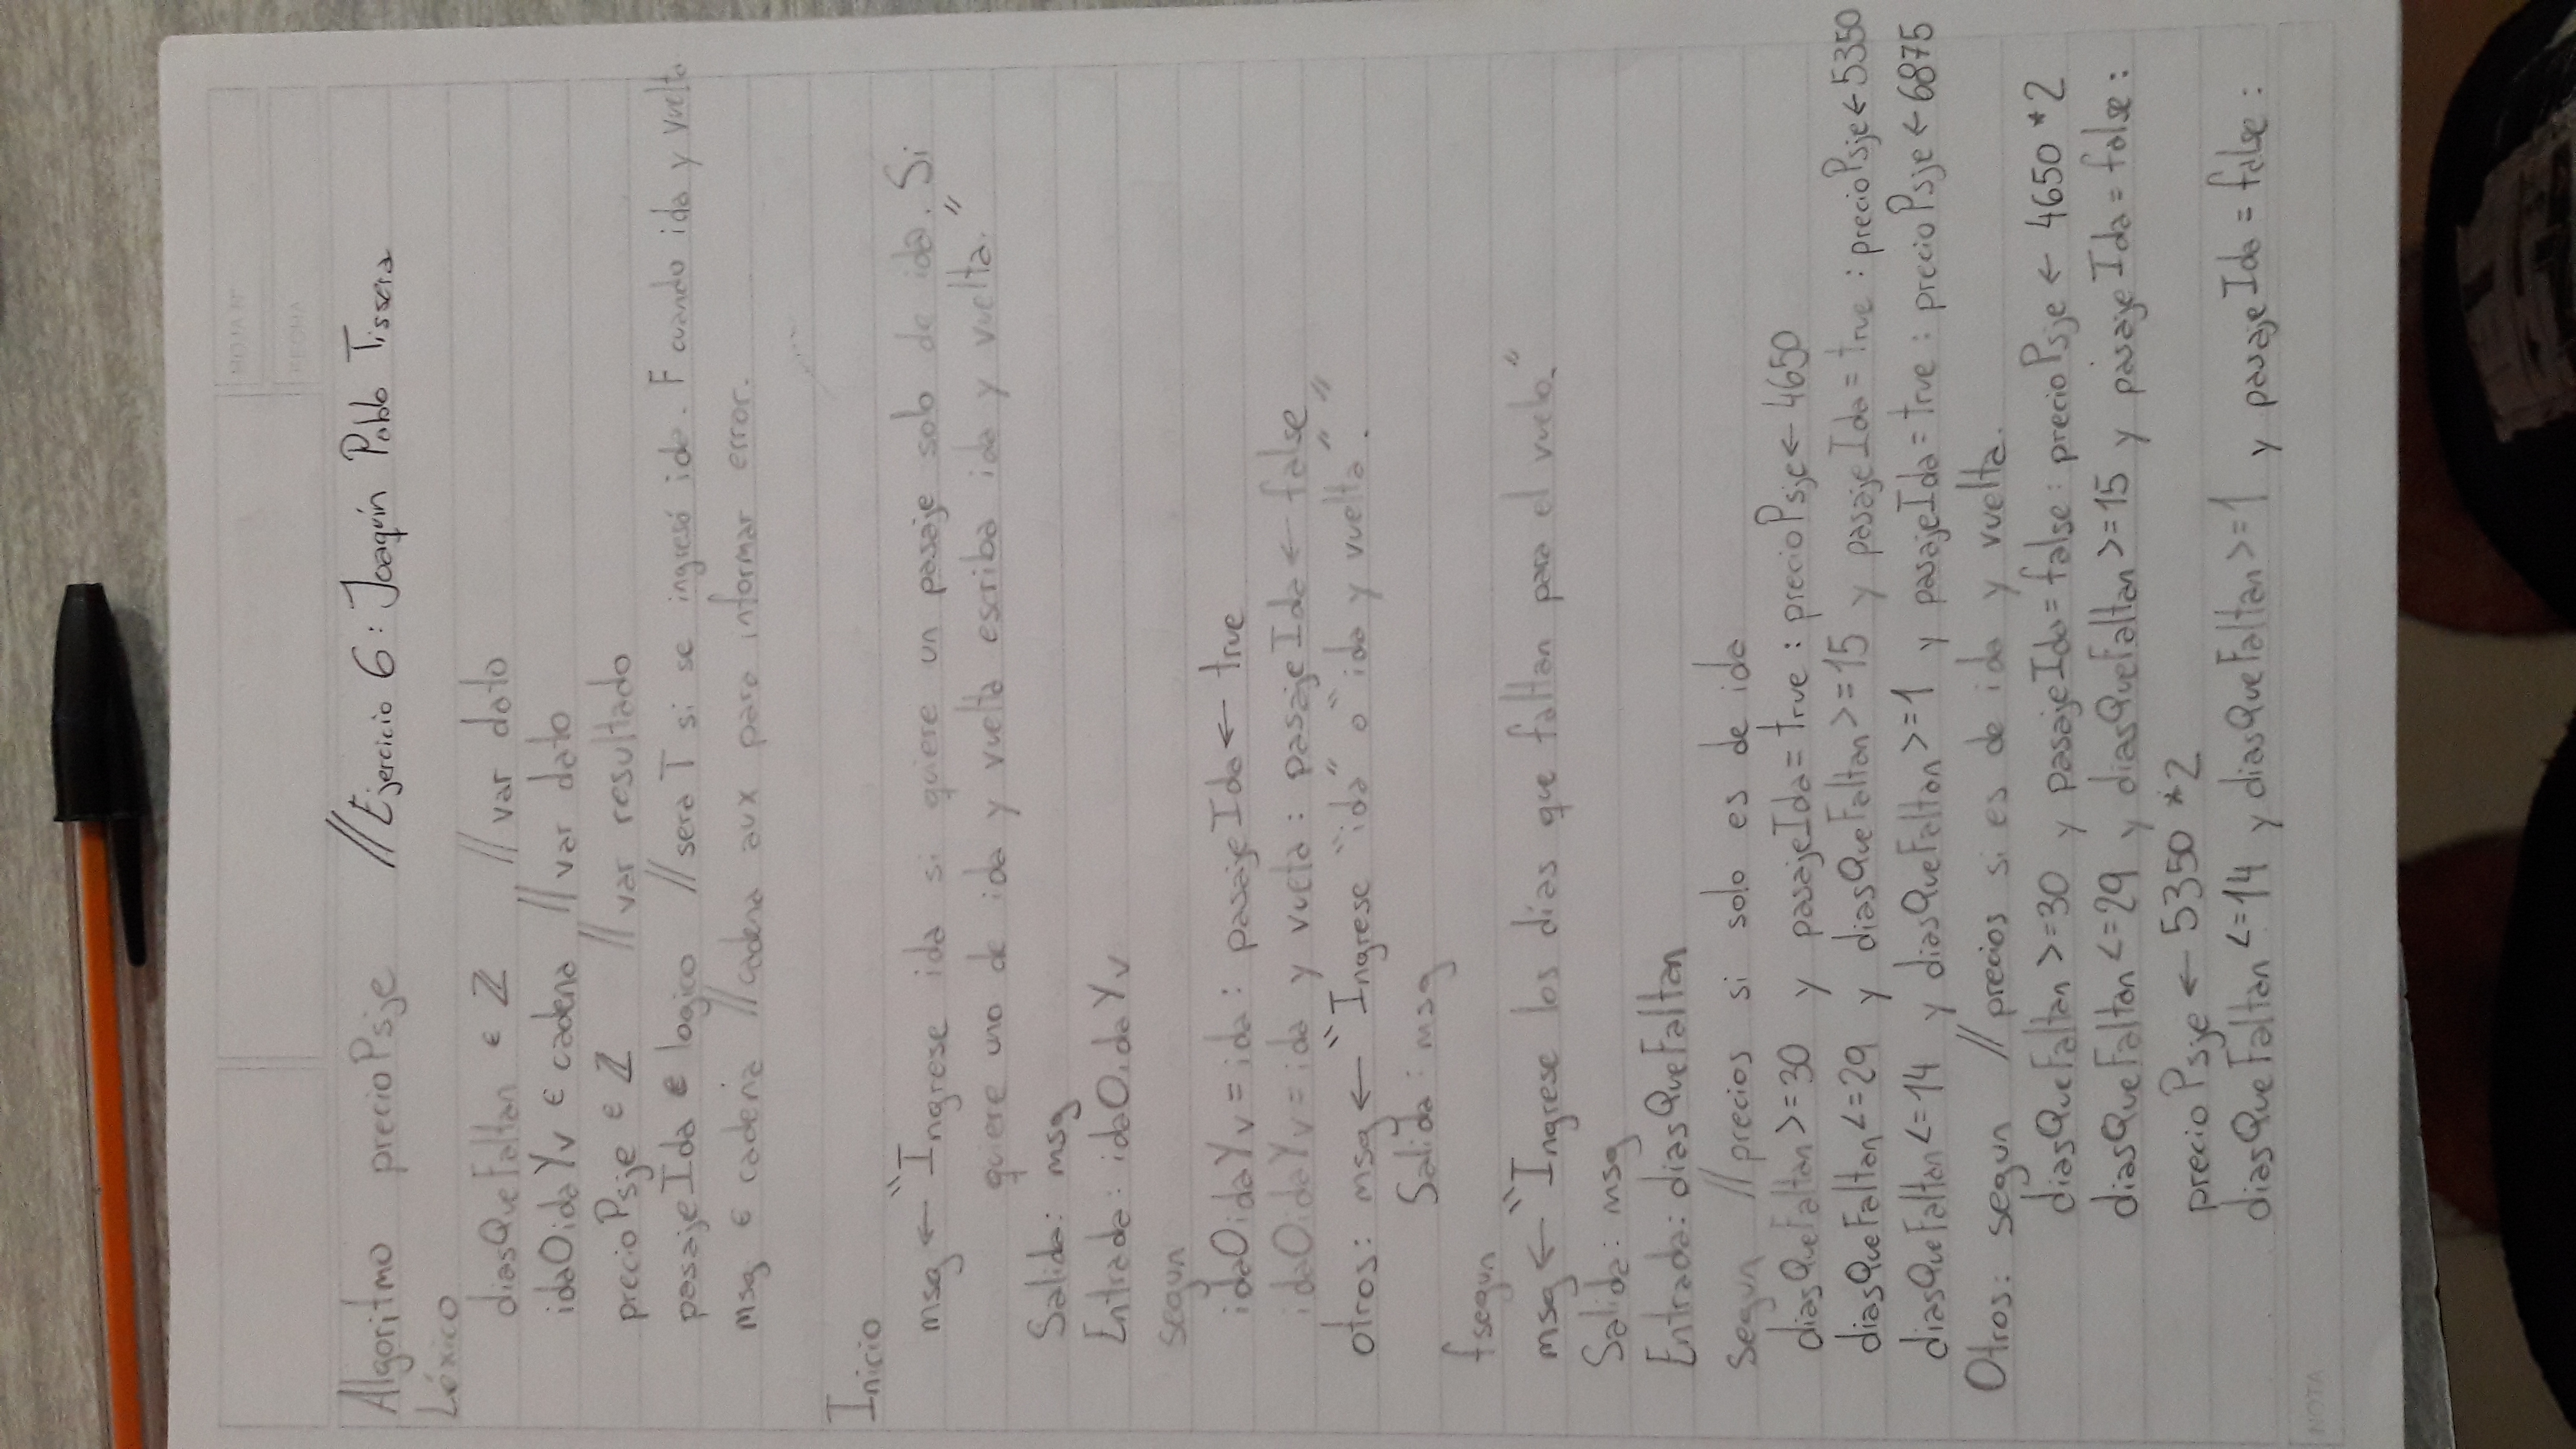 HOJA N°
FECHA
Algoritmo precioPsje //Ejercicio 6: Joaquín Pablo Tissera
Léxico
diasQueFaltan ∈ ℤ // var dato
idaOidaYv ∈ cadena // var dato
precioPsje ∈ ℤ // var resultado
pasajeIda ∈ logico // sera T si se ingresó ida. F cuando ida y vuelta
msg ∈ cadena // cadena aux para informar error.
Inicio
msg ← "Ingrese ida si quiere un pasaje solo de ida. Si
quiere uno de ida y vuelta escriba ida y vuelta."
Salida: msg
Entrada: idaOidaYv
segun
idaOidaYv = ida : pasajeIda ← true
idaOidaYv = ida y vuelta : pasajeIda ← false
otros: msg ← "Ingrese "ida" o "ida y vuelta"."
Salida: msg
fsegun
msg ← "Ingrese los dias que faltan para el vuelo."
Salida: msg
Entrada: diasQueFaltan
segun // precios si solo es de ida
diasQueFaltan >=30 y pasajeIda = true : precioPsje ← 4650
diasQueFaltan <=29 y diasQueFaltan >=15 y pasajeIda = true : precioPsje ← 5350
diasQueFaltan <=14 y diasQueFaltan >=1 y pasajeIda = true : precioPsje ← 6875
Otros: segun // precios si es de ida y vuelta.
diasQueFaltan >=30 y pasajeIda = false : precioPsje ← 4650 *2
diasQueFaltan <=29 y diasQueFaltan >=15 y pasajeIda = false :
precioPsje ← 5350 *2
diasQueFaltan <=14 y diasQueFaltan >=1 y pasajeIda = false :
NOTA